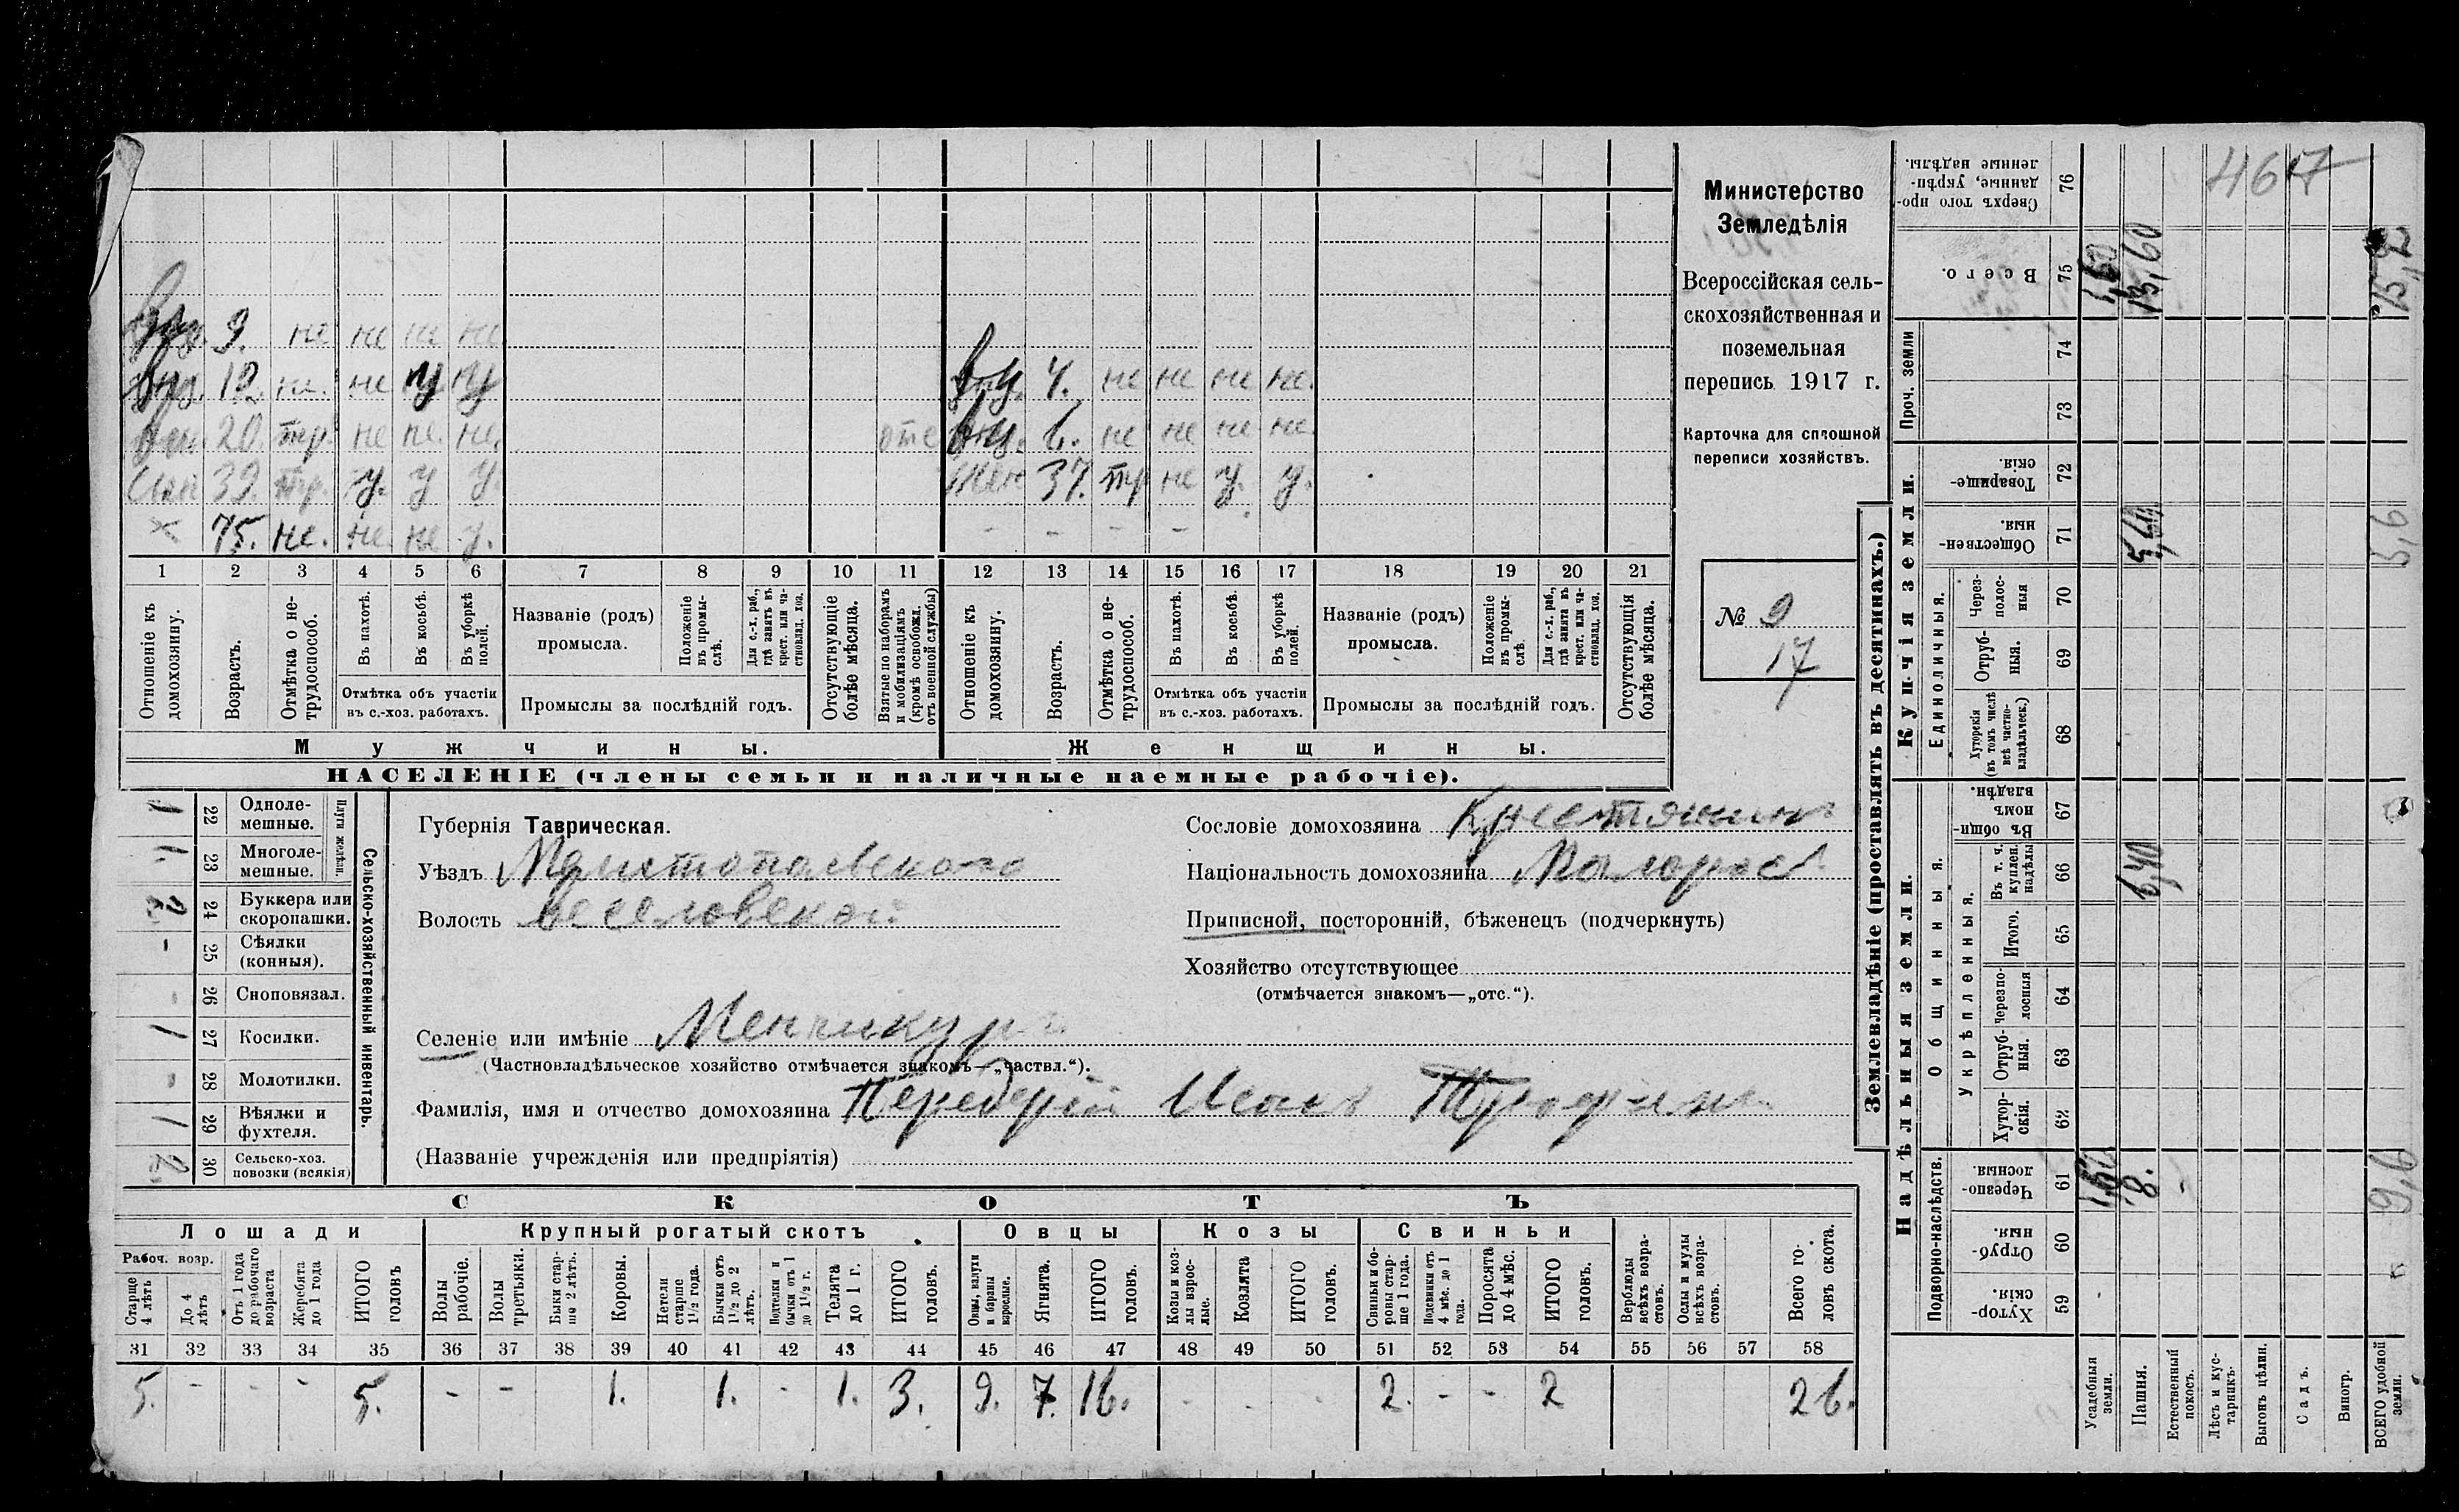 внц. 9. не не не не
внц. 12. не. не у у внц. 4. не не не не.
внк. 20. тр. не не. не. отс внц. 6. не не не не.
Сын 39. тр. у. у у. Жен 37. тр не у. у.
× 75. не. не. не у. - - - -
1 2 3 4 5 6 7 8 9 10 11 12 13 14 15 16 17 18 19 20 21
Отношеніе къ домохозяину.
Возрастъ.
Отмѣтка о не-
трудоспособ.
Въ пахотѣ.
Въ косьбѣ.
Въ уборкѣ полей.
Отмѣтка объ участіи
въ с.-хоз. работахъ.
Названіе (родъ)
промысла.
Положеніе
въ промы-
слѣ.
Для с.-х. раб.,
гдѣ занятъ въ
крест. или ча-
стновлад. хоз.
Промыслы за послѣдній годъ.
Отсутствующіе
болѣе мѣсяца.
Взятые по наборамъ
и мобилизаціямъ
(кромѣ освобожд.
отъ военной службы)
Отношеніе къ
домохозяину.
Возрастъ.
Отмѣтка о не-
трудоспособ.
Въ пахотѣ.
Въ косьбѣ.
Въ уборкѣ
полей.
Отмѣтка объ участіи
въ с.-хоз. работахъ.
Названіе (родъ)
промысла.
Положеніе
въ промы-
слѣ.
Для с.-х. раб.,
гдѣ занята въ
крест. или ча-
стновлад. хоз.
Промыслы за послѣдній годъ.
Отсутствующія
болѣе мѣсяца.
Мужчины. Женщины.
НАСЕЛЕНІЕ (члены семьи и наличные наемные рабочіе).
Министерство
Земледѣлія
Всероссійская сель-
скохозяйственная и
поземельная
перепись 1917 г.
Карточка для сплошной
переписи хозяйствъ.
№ 9
17
1 22 Одноле-
мешные.
1. 23 Многоле-
мешные.
Плуги желѣзн.
2 24 Буккера или
скоропашки.
- 25 Сѣялки
(конныя).
- 26 Сноповязал.
1 27 Косилки.
- 28 Молотилки.
1 29 Вѣялки и
фухтеля.
2 30 Сельско-хоз.
повозки (всякія)
Сельско-хозяйственный инвентарь.
Губернія Таврическая.
Уѣздъ Мелитопольскаго
Волость Веселовской
Сословіе домохозяина Крестьянинъ
Національность домохозяина Малоросс.
Приписной, посторонній, бѣженецъ (подчеркнуть)
Хозяйство отсутствующее
(отмѣчается знакомъ—„отс.“).
Селеніе или имѣніе Менчикуръ
(Частновладѣльческое хозяйство отмѣчается знакомъ—„частвл.“).
Фамилія, имя и отчество домохозяина Передерій Исакъ
(Названіе учрежденія или предпріятія)
СКОТЪ
Лошади Крупный рогатый скотъ Овцы Козы Свиньи
Рабоч. возр.
Старше
4 лѣтъ
До 4
лѣтъ
Отъ 1 года
до рабочаго
возраста
Жеребята
до 1 года
ИТОГО
головъ
Волы
рабочіе.
Волы
третьяки.
Быки стар-
ше 2 лѣтъ.
Коровы.
Нетели
старше
1½ года.
Бычки отъ
1½ до 2
лѣтъ.
Подтелки и
бычки отъ 1
до 1½ г.
Телята
до 1 г.
ИТОГО
головъ.
Овцы, валухи
и бараны
взрослые.
Ягнята.
ИТОГО
головъ.
Козы и коз-
лы взрос-
лые.
Козлята
ИТОГО
головъ.
Свиньи и бо-
ровы стар-
ше 1 года.
Подсвинки отъ
4 мѣс. до 1
года.
Поросята
до 4 мѣс.
ИТОГО
головъ.
Верблюды
всѣхъ возра-
стовъ.
Ослы и мулы
всѣхъ возра-
стовъ.
Всего го-
ловъ скота.
31 32 33 34 35 36 37 38 39 40 41 42 43 44 45 46 47 48 49 50 51 52 53 54 55 56 57 58
5. - - - 5. - - 1. 1. - 1. 3. 9. 7. 16. - - - 2. - - 2 26.
Землевладѣніе (проставлять въ десятинахъ.)
Надѣльныя земли. Купчія земли. Проч. земли
Подворно-наслѣдств.
Общинныя.
Укрѣпленныя.
Единоличныя.
Хутор-
скія. 59
Отруб-
ныя. 60
Черезпо-
лосныя. 61 1,60 8. - 9,6
Хутор-
скія. 62
Отруб-
ныя. 63
Черезпо-
лосныя 64
Итого. 65
Въ т. ч.
куплен.
надѣлы 66 6,40
Въ общи-
номъ
владѣн. 67
Хуторскія
(въ томъ числѣ
всѣ частно-
владѣльческ.) 68
Отруб-
ныя. 69
Через-
полос-
ныя 70
Обществен-
ныя. 71 5,60 5,6
Товарище-
скія. 72
73
74
Всего. 75 1,60 13,60 15,2
Сверхъ того про-
данные, укрѣп-
ленные надѣлы. 76
4617
Усадебныя
земли.
Пашня.
Естественный
покосъ.
Лѣсъ и кус-
тарникъ.
Выгонъ цѣлин.
Садъ.
Виногр.
ВСЕГО удобной
земли.